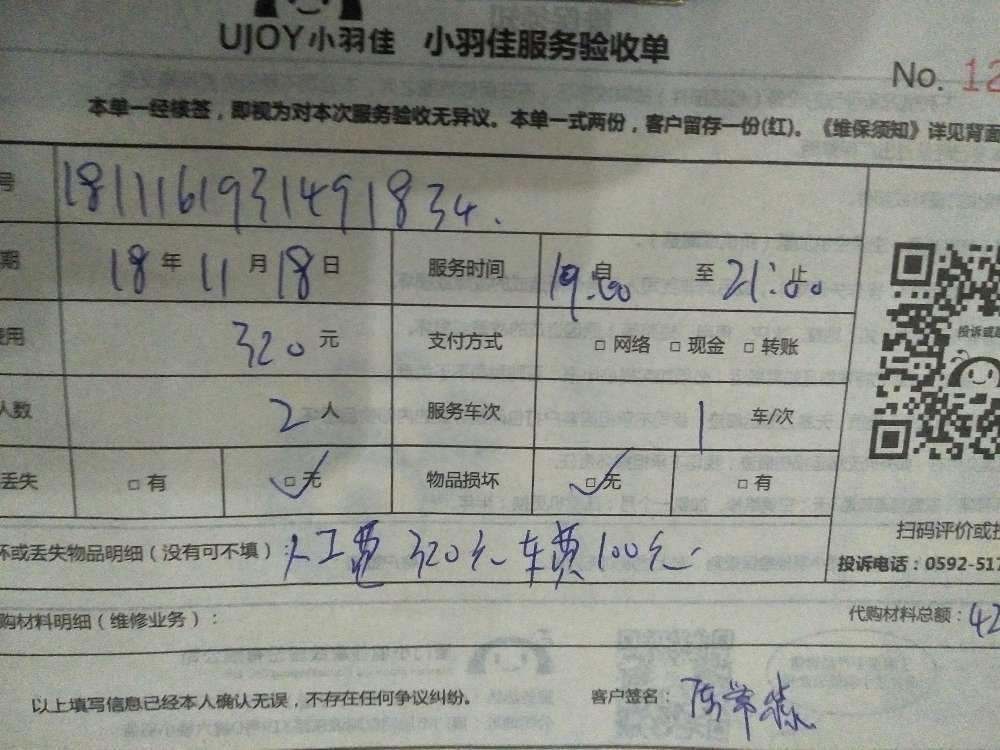 UJOY小羽佳 小羽佳服务验收单
No. 12
本单一经核签，即视为对本次服务验收无异议。本单一式两份，客户留存一份(红)。《维保须知》详见背面
号 1811161931491834.
期 18年11月18日 服务时间 19:00自 至21:00止
费用 320元 支付方式 □网络 □现金 □转账
人数 2人 服务车次 1 车/次
丢失 □有 □无 物品损坏 □无 □有
投诉或
扫码评价或投
坏或丢失物品明细（没有可不填）：人工费320元 车费100元
投诉电话：0592-517
购材料明细（维修业务）：
代购材料总额：42
以上填写信息已经本人确认无误，不存在任何争议纠纷。 客户签名：